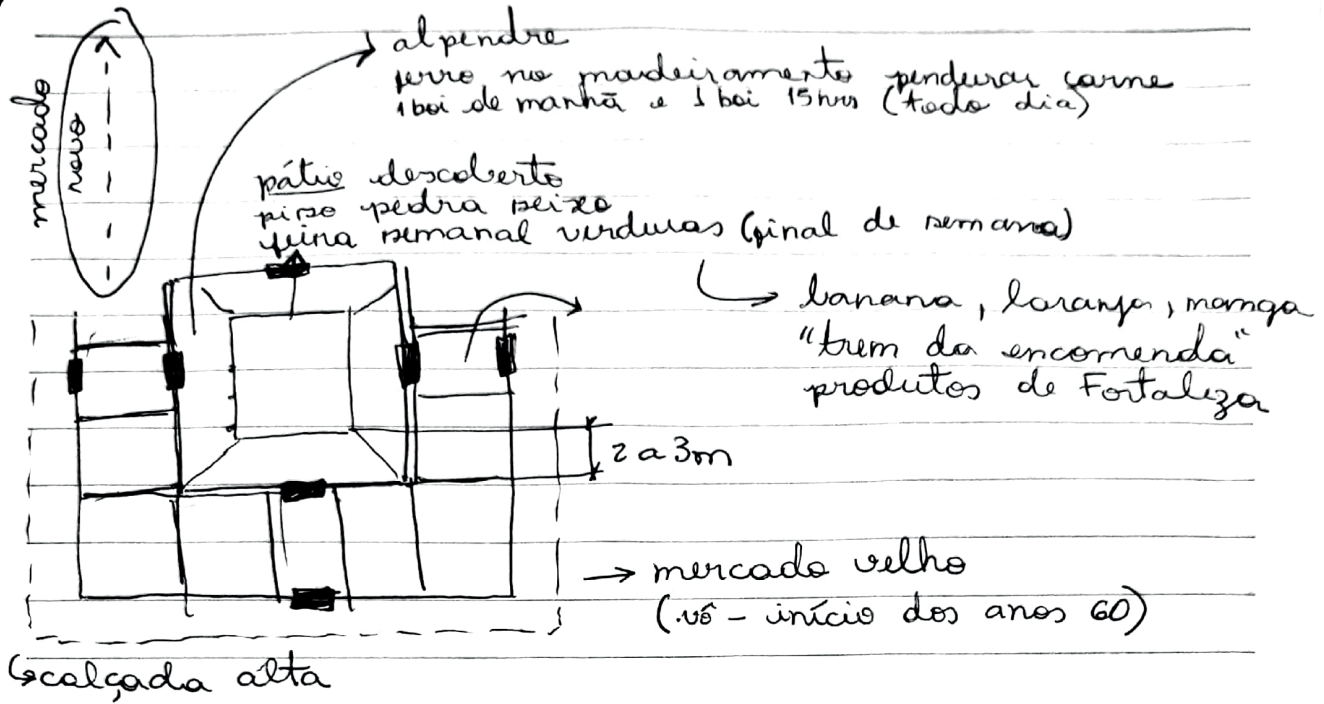 alpendre
ferro no madeiramento pendurar carne
1 boi de manhã e 1 boi 15hrs (todo dia)
mercado
novo
pátio descoberto
piso pedra seixo
feira semanal verduras (final de semana)
banana, laranja, manga
"trem da encomenda"
produtos de Fortaleza
2 a 3m
mercado velho
(vô - início dos anos 60)
calçada alta